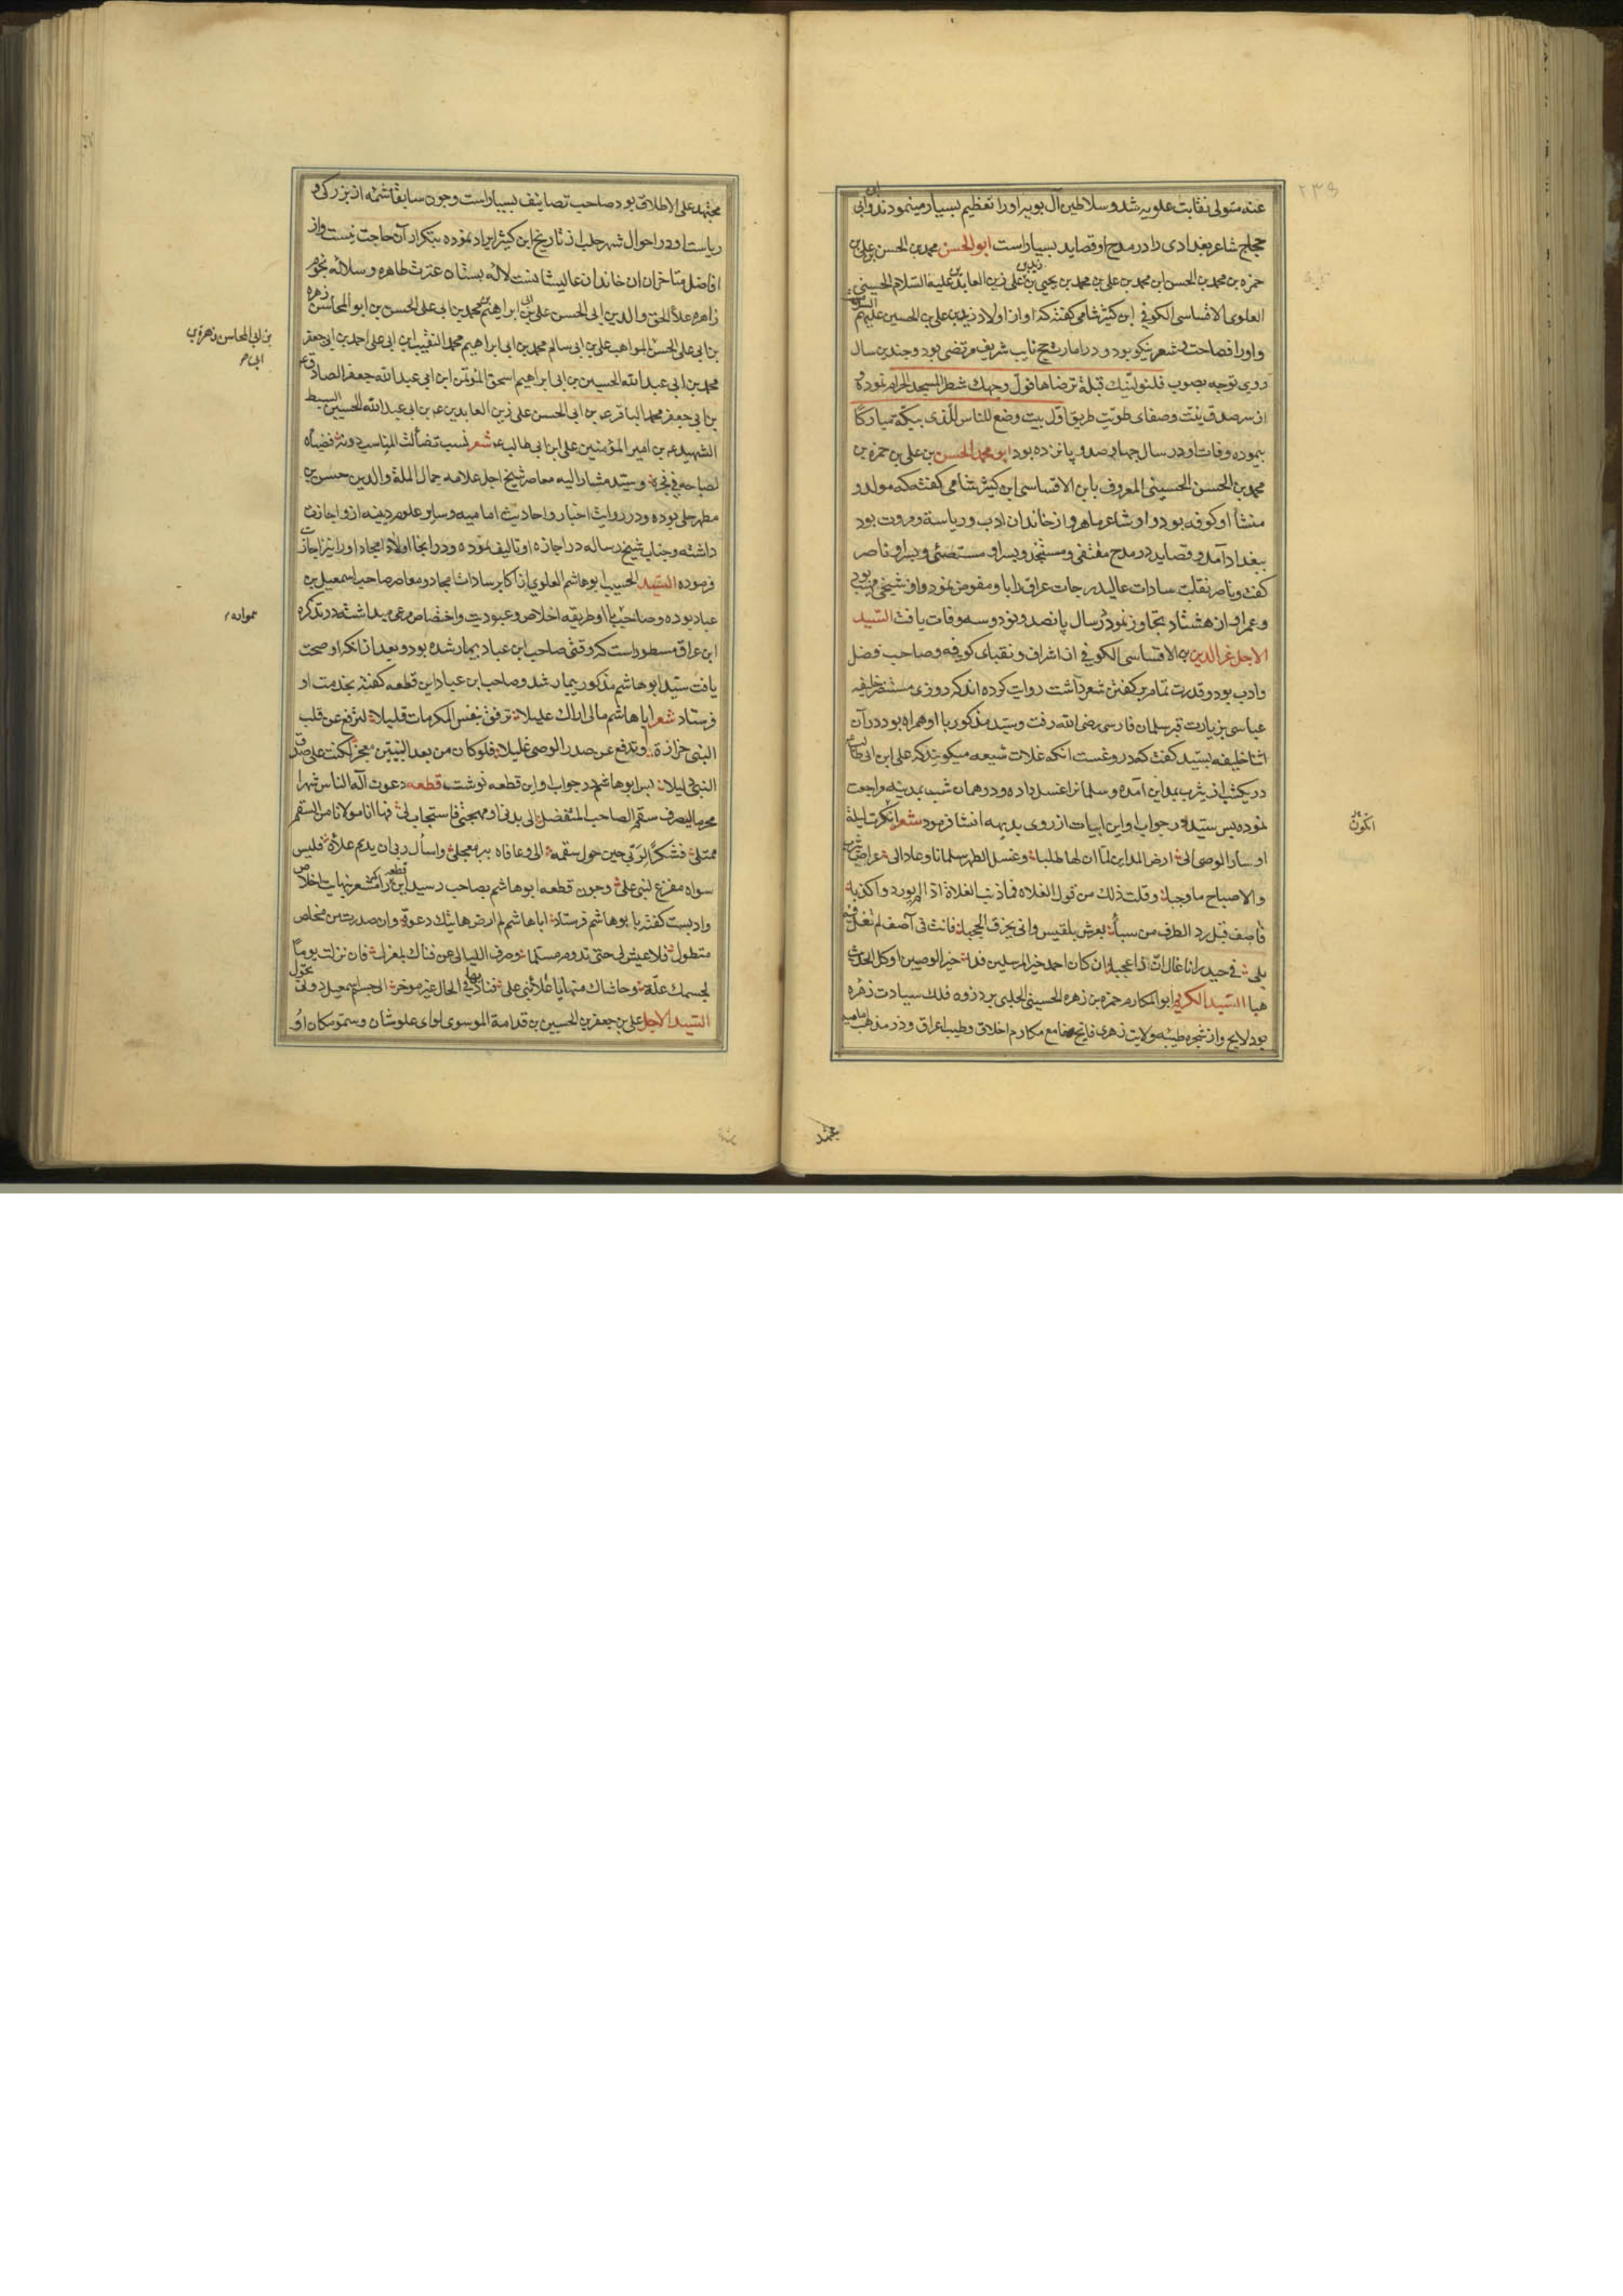 ۲۳۹
عنه متولی نقابت علویه شد و سلاطین آل بویه او را تعظیم بسیار مینمودند و ابن
حجاج شاعر بغدادی را در مدح او قصاید بسیار است ابو الحسن محمد بن الحسن بن علی بن
حمزه بن محمد بن الحسن ابن محمد بن علی بن محمد بن یحیی بن علی زین العابدین علیه السلام الحسینی
العلوی الاقساسی الکوفی ابن کثیر شامی گفته که او از اولاد زید بن علی بن الحسین علیهم السلام
و او را فصاحت و شعر نیکو بود و در امارت حج نایب شریف مرتضی بود و چندین سال
روی توجه بصوب فلنولینك قبلة ترضاها فول وجهك شطر المسجد الحرام نموده و
از سر صدق نیت و صفای طویت طریق اول بیت وضع للناس للذی ببکة مبارکا
پیموده وفات او در سال چهارصد و پانزده بود ابو محمد الحسن بن علی بن حمزه بن
محمد بن الحسن الحسینی المعروف بابن الاقساسی ابن کثیر شامی گفته که مولد و
منشأ او کوفه بود و او شاعر ماهر و از خاندان ادب و ریاسة و مروت بود
ببغداد آمد و قصاید در مدح مقتفی و مستنجد و پسر او مستضئی و پسر او ناصر
گفت و ناصر نقابت سادات عالیدرجات عراق را با و مفوض نمود و او شیخی مهیب بود
و عمر او از هشتاد تجاوز نمود در سال پانصد و نود و سه وفات یافت السید
الاجل عز الدین بن الاقساسی الکوفی از اشراف و نقبای کوفه و صاحب فضل
و ادب بود و قدرت تمام بر گفتن شعر داشت روایت کرده اند که روزی مستنصر خلیفه
عباسی بزیارت قبر سلمان فارسی رضی الله رفت و سید مذکور با او همراه بود در آن
اثنا خلیفه بسید گفت که دروغست انکه غلات شیعه میگویند که علی ابن ابی طالب
در یکشب از یثرب بمداین آمده و سلمان را غسل داده و در همان شب بمدینه مراجعت
نموده پس سید در جواب او این ابیات از روی بدیهه انشا فرمود شعر انکرت لیلة
او سار الوصی الی ارض المداین لما ان لها طلبا و غسل الطهر سلمانا و عاد الی عراص یثرب
و الاصباح ما وجبا و قلت ذلك من قول الغلاة فما ذنب الغلاة اذا لم یورد و اکذبا
فآصف قبل رد الطرف من سبأ بعرش بلقیس وافی یخرق الحجبا فانت فی آصف لم تغل فیه
بلی فی حیدر انا غال ان ذا عجبا ان کان احمد خیر المرسلین فذا خیر الوصیین او کل الحدیث
هبا السید الکریم ابو المکارم حمزه بن زهره الحسینی الحلبی بر ذروه فلك سیادت زهره
بود لایح و از شجره طیبه ولایت زهری فایح جامع مکارم اخلاق و طیب اعراق و در مذهب امامیه
مجتهد
مجتهد علی الاطلاق بود صاحب تصانیف بسیار است و چون سابقا شمه از بزرگی و
ریاست او در احوال شهر حلب از تاریخ ابن کثیر ایراد نموده بتکرار آن حاجت نیست و از
افاضل متاخران ان خاندان عالیشانست لاله بستان عترت طاهره و سلاله نجوم
زاهره علاء الحق و الدین ابی الحسن علی بن ابراهیم بن محمد بن ابی علی الحسن بن ابو المحاسن زهره
بن ابی علی الحسن المواهب علی بن ابی سالم محمد بن ابی ابراهیم محمد النقیب ابن ابی علی احمد بن ابی جعفر
محمد بن ابی عبد الله الحسین بن ابی ابراهیم اسحق المؤتمن ابن ابی عبد الله جعفر الصادق ع
بن ابی جعفر محمد الباقر ع بن ابی الحسن علی زین العابدین ع بن ابی عبد الله الحسین السبط
الشهید ع بن امیر المؤمنین علی ابن ابی طالب ع شعر نسب تضاءلت المناسب دونه فضیاه
لصباحه فی فجره و سید مشار الیه معاصر شیخ اجل علامه جمال الملة و الدین حسن بن
مطهر حلی بوده و در روایت اخبار و احادیث امامیه و سایر علوم دینیه از و اجازت
داشته و جناب شیخ رساله در اجازه او تالیف نموده و در آنجا اولاد امجاد او را نیز اجازت
فرموده السید الحسیب ابو هاشم العلوی از اکابر سادات امجاد و معاصر صاحب اسمعیل بن
عباد بوده و صاحب با او طریقه اخلاص و عبودیت و اختصاص مرعی میداشته در تذکره
ابن عراق مسطور است که وقتی صاحب ابن عباد بیمار شده بود و بعد از انکه او صحت
یافت سید ابو هاشم مذکور بیمار شد و صاحب ابن عباد این قطعه گفته بخدمت او
فرستاد شعر ابا هاشم مالی اراك علیلا ترفق بنفس المکرمات قلیلا لترفع عن قلب
النبی حزازة و تدفع عن صدر الوصی غلیلا فلو کان من بعد النبیین معجز لکنت علی صدق
النبی دلیلا پس ابو هاشم در جواب او این قطعه نوشت قطعه دعوت اله الناس شهرا
محرما لیصرف سقم الصاحب المتفضل الی بدنی او مهجتی فاستجاب لی فها انا مولانا من السقم
ممتلی فشکرا لربی حین حول سقمه الی و عافاه ببرء معجل و اسأل ربی ان یدیم علاءه فلیس
سواه مفزع لبنی علی و چون قطعه ابو هاشم بصاحب رسید این قطعه را گفته مشعر نهایت اخلاص
و ادبست گفته بابو هاشم فرستاد ابا هاشم لم ارض هاتیك دعوة و ان صدرت من مخلص
متطول فلا عیش لی حتی تدوم مسلما و صرف اللیالی عن فناك بمعزل فان نزلت یوما
لجسمك علة و حاشاك منها یا علاء بنی علی فناد بها فی الحال غیر موخر الی جسم اسمعیل دونی تحولی
السید الاجل علی بن جعفر بن الحسین بن قدامة الموسوی لوای علو شان و سمو مکان او
بن ابی المحاسن زهره بن
ابی